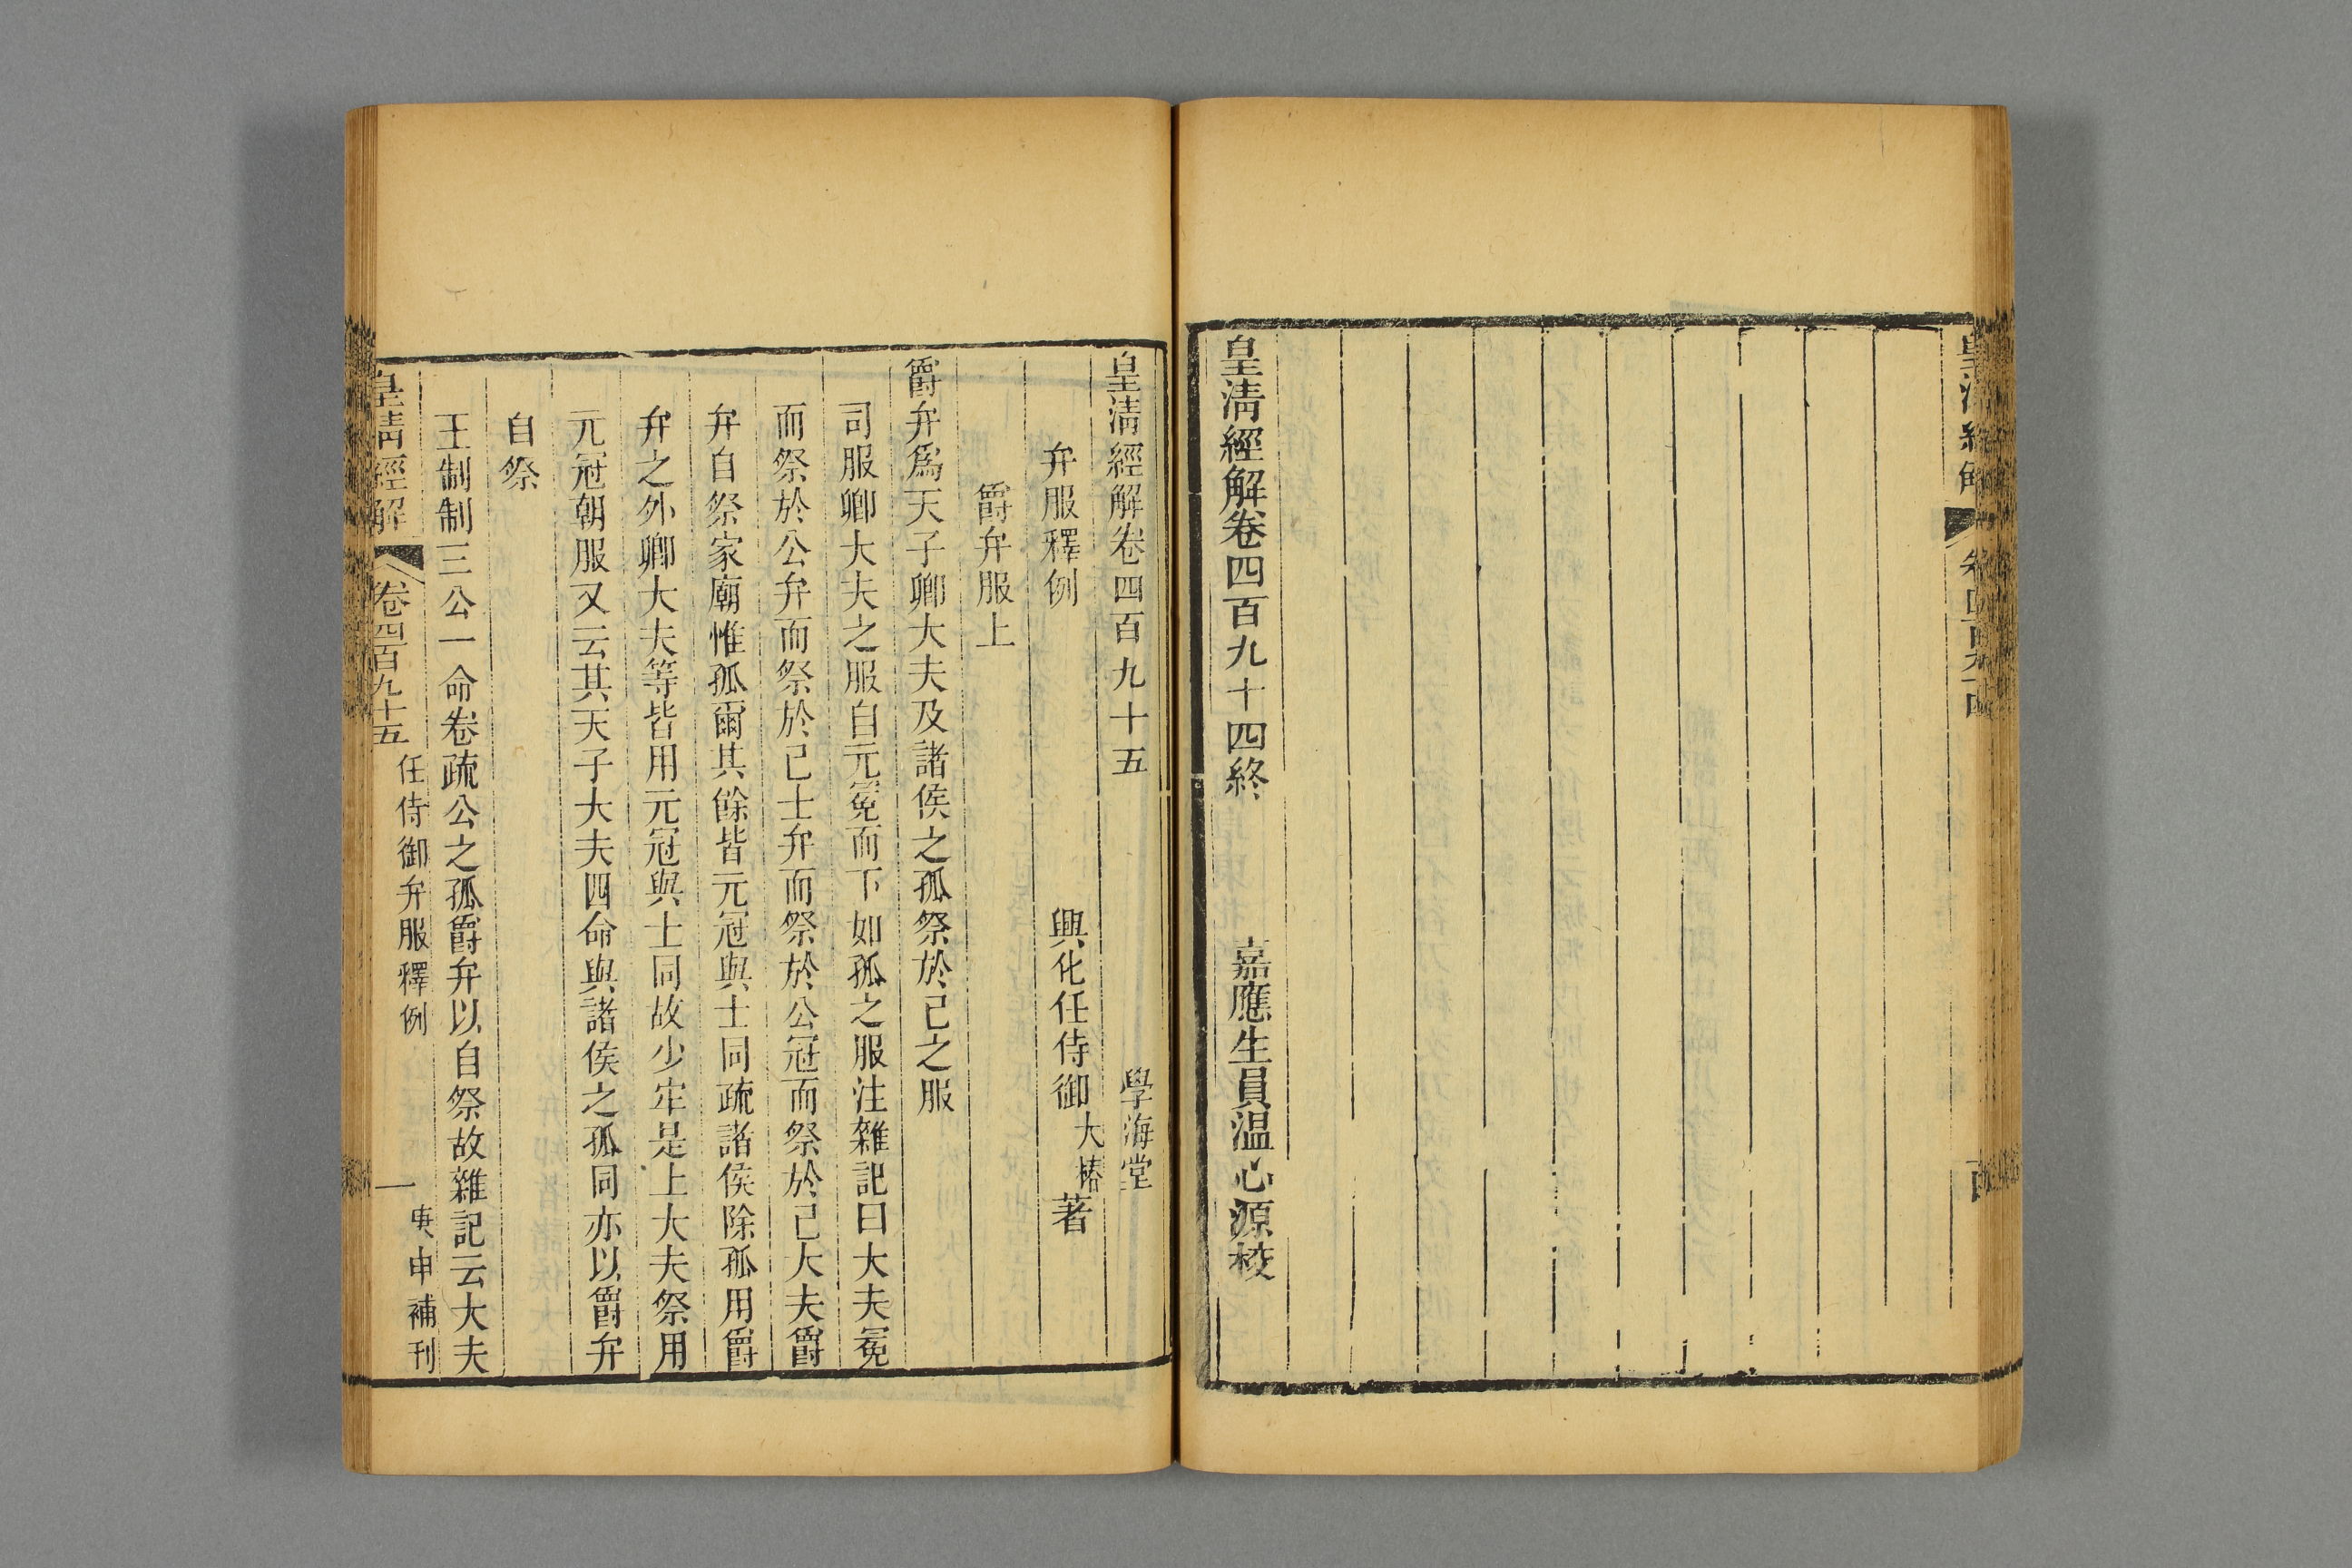 皇清經解
皇清經解卷四百九十四終　嘉應生員温心源校
皇清經解卷四百九十五　學海堂
弁服釋例　興化任侍御大椿著
爵弁服上
爵弁爲天子卿大夫及諸侯之孤祭於己之服
司服卿大夫之服自元冕而下如孤之服注雜記曰大夫冕
而祭於公弁而祭於己士弁而祭於公冠而祭於己大夫爵
弁自祭家廟惟孤爾其餘皆元冠與士同疏諸侯除孤用爵
弁之外卿大夫等皆用元冠與士同故少牢是上大夫祭用
元冠朝服又云其天子大夫四命與諸侯之孤同亦以爵弁
自祭
王制制三公一命卷疏公之孤爵弁以自祭故雜記云大夫
皇清經解　卷四百九十五　任侍御弁服釋例　一　庚申補刊